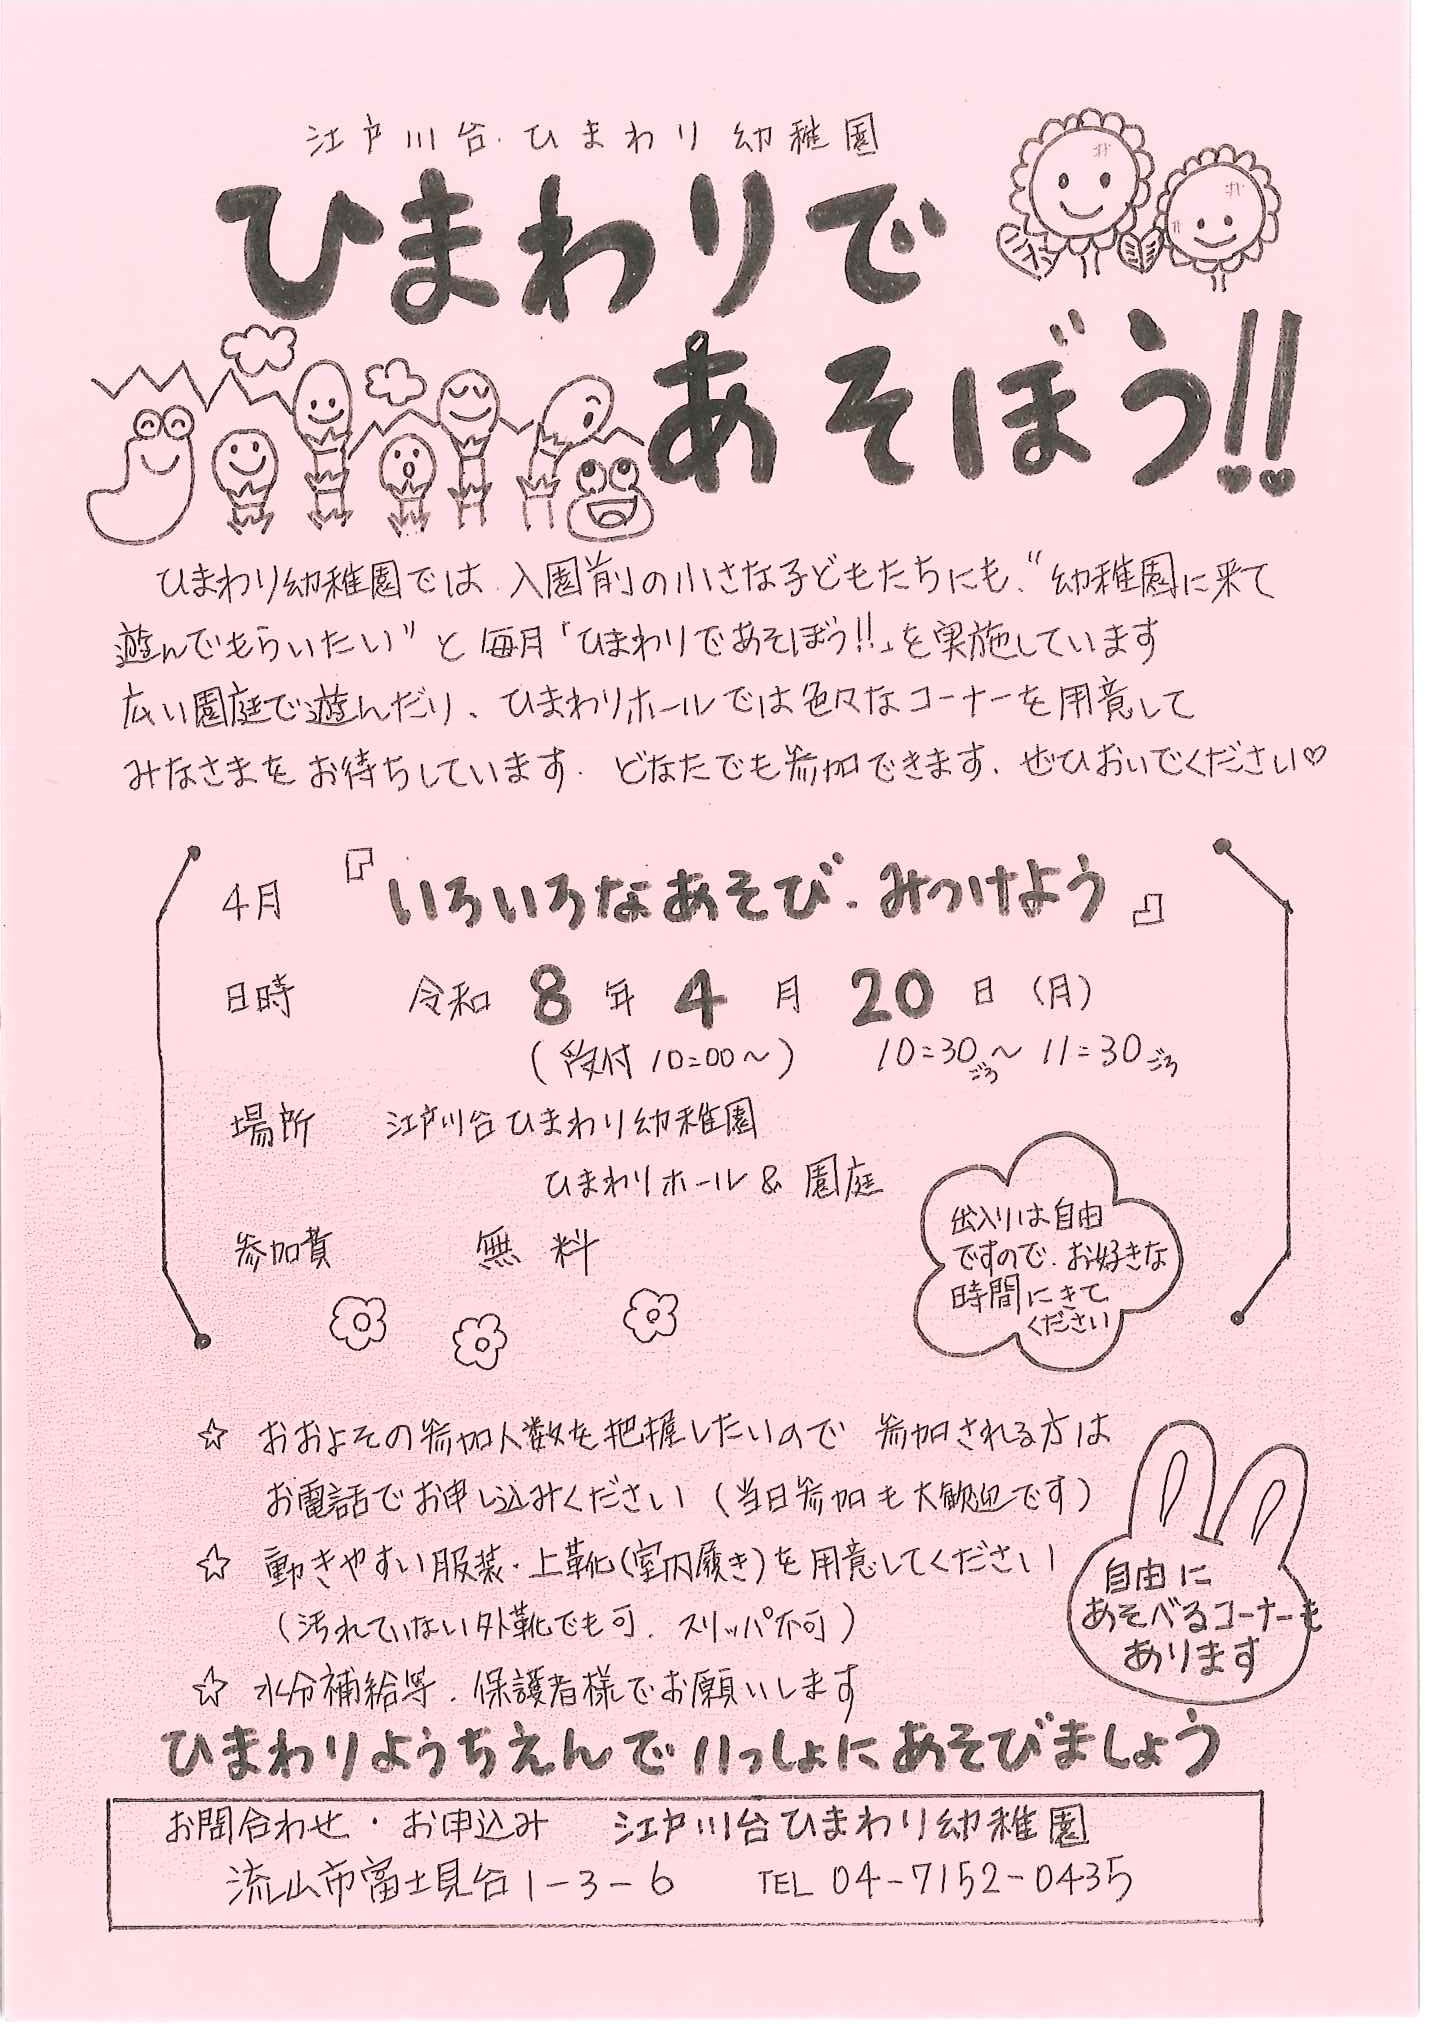 江戸川台ひまわり幼稚園
ひまわりで
あそぼう!!
ひまわり幼稚園では、入園前の小さな子どもたちにも、“幼稚園に来て
遊んでもらいたい”と毎月「ひまわりであそぼう!!」を実施しています
広い園庭で遊んだり、ひまわりホールでは色々なコーナーを用意して
みなさまをお待ちしています。どなたでも参加できます、ぜひおいでください♡
4月 『いろいろなあそび、みつけよう』
日時 令和 8年 4月 20日(月)
(受付 10:00〜) 10:30ごろ〜11:30ごろ
場所 江戸川台ひまわり幼稚園
ひまわりホール & 園庭
参加費 無料
出入りは自由
ですので、お好きな
時間にきて
ください
☆ おおよその参加人数を把握したいので 参加される方は
お電話でお申し込みください(当日参加も大歓迎です)
☆ 動きやすい服装・上靴(室内履き)を用意してください
(汚れていない外靴でも可、スリッパ不可)
☆ 水分補給等、保護者様でお願いします
自由に
あそべるコーナーも
あります
ひまわりようちえんでいっしょにあそびましょう
お問合わせ・お申込み 江戸川台ひまわり幼稚園
流山市富士見台1-3-6 TEL 04-7152-0435